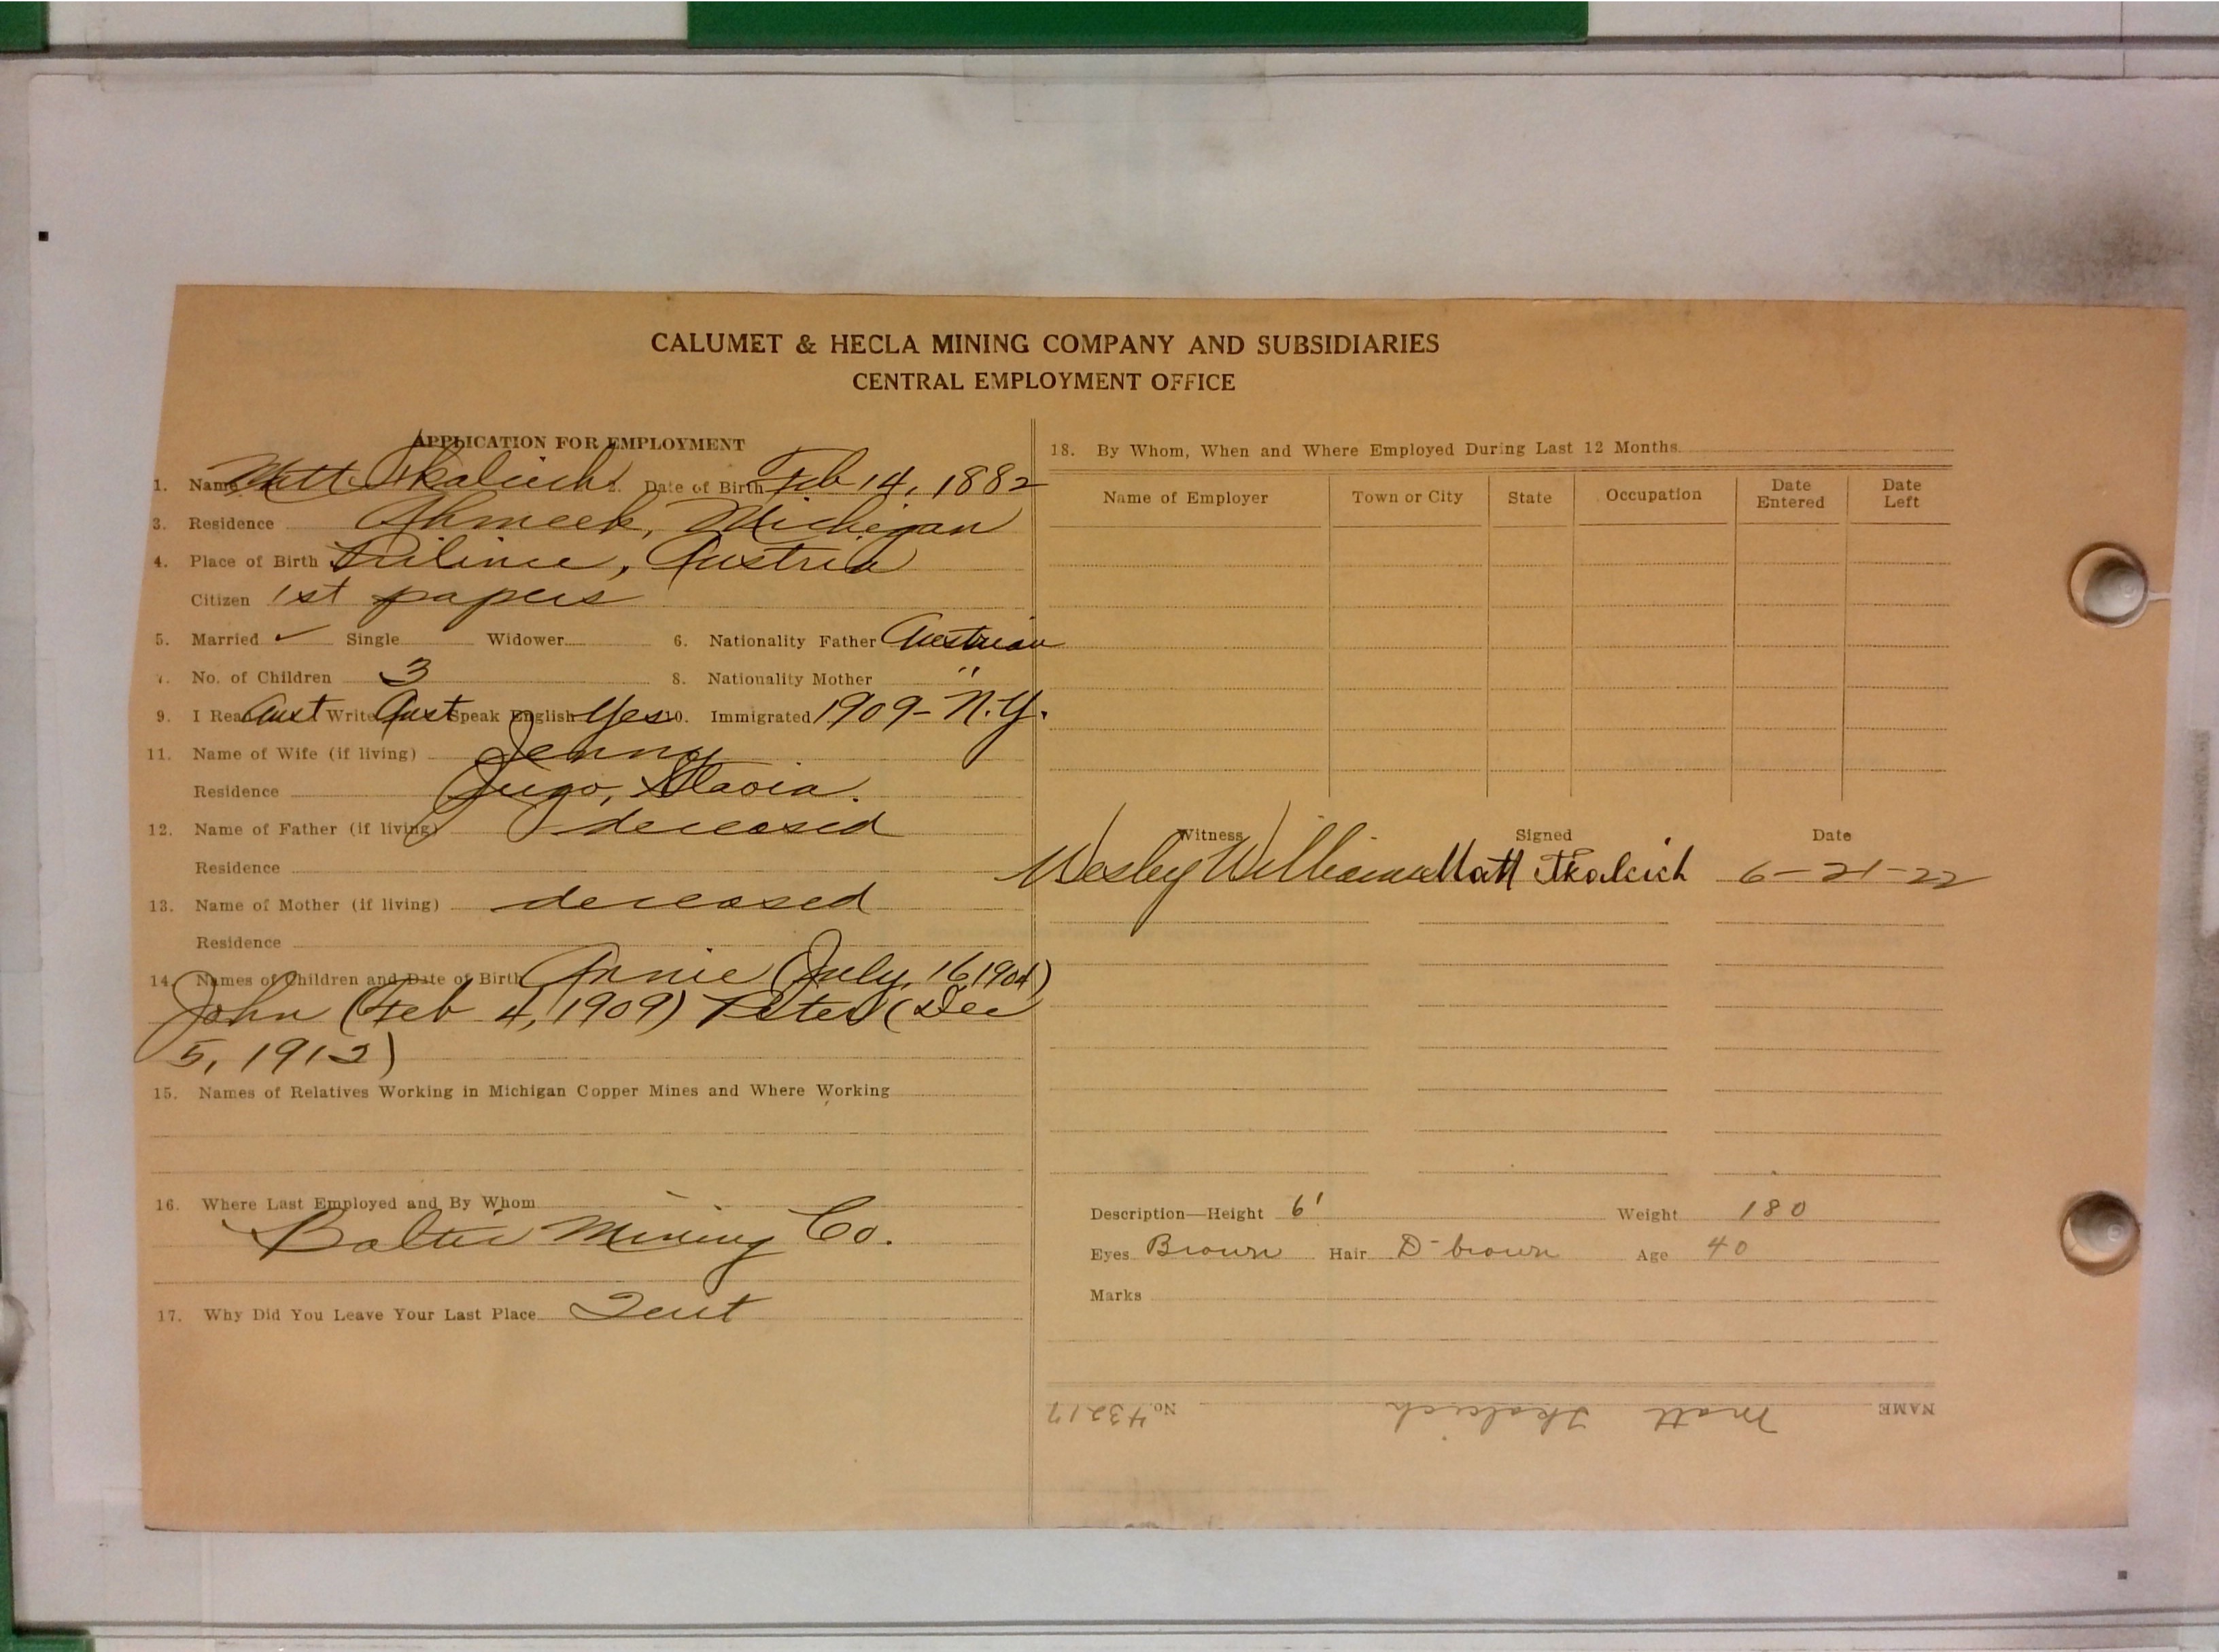 CALUMET & HECLA MINING COMPANY AND SUBSIDIARIES
CENTRAL EMPLOYMENT OFFICE
APPLICATION FOR EMPLOYMENT
1. Name Matt Tkalcich 2. Date of Birth Feb 14, 1882
3. Residence Ahmeek, Michigan
4. Place of Birth Austria
Citizen 1st papers
5. Married ✓ Single Widower 6. Nationality Father Austrian
7. No. of Children 3 8. Nationality Mother "
9. I Read Aust Write Aust Speak English Yes 10. Immigrated 1909 - N.Y.
11. Name of Wife (if living) Jenny
Residence Jugo, Slavia.
12. Name of Father (if living) deceased
Residence
13. Name of Mother (if living) deceased
Residence
14. Names of Children and Date of Birth Annie (July, 16 1904)
John (Feb 4, 1909) Peter (Dec
5, 1912)
15. Names of Relatives Working in Michigan Copper Mines and Where Working
16. Where Last Employed and By Whom
Baltic Mining Co.
17. Why Did You Leave Your Last Place Quit
18. By Whom, When and Where Employed During Last 12 Months
Name of Employer Town or City State Occupation Date Entered Date Left
Witness Signed Date
Wesley Williams Matt Tkalcich 6-21-22
Description—Height 6' Weight 180
Eyes Brown Hair D-brown Age 40
Marks
NAME Matt Tkalcich No. 43217